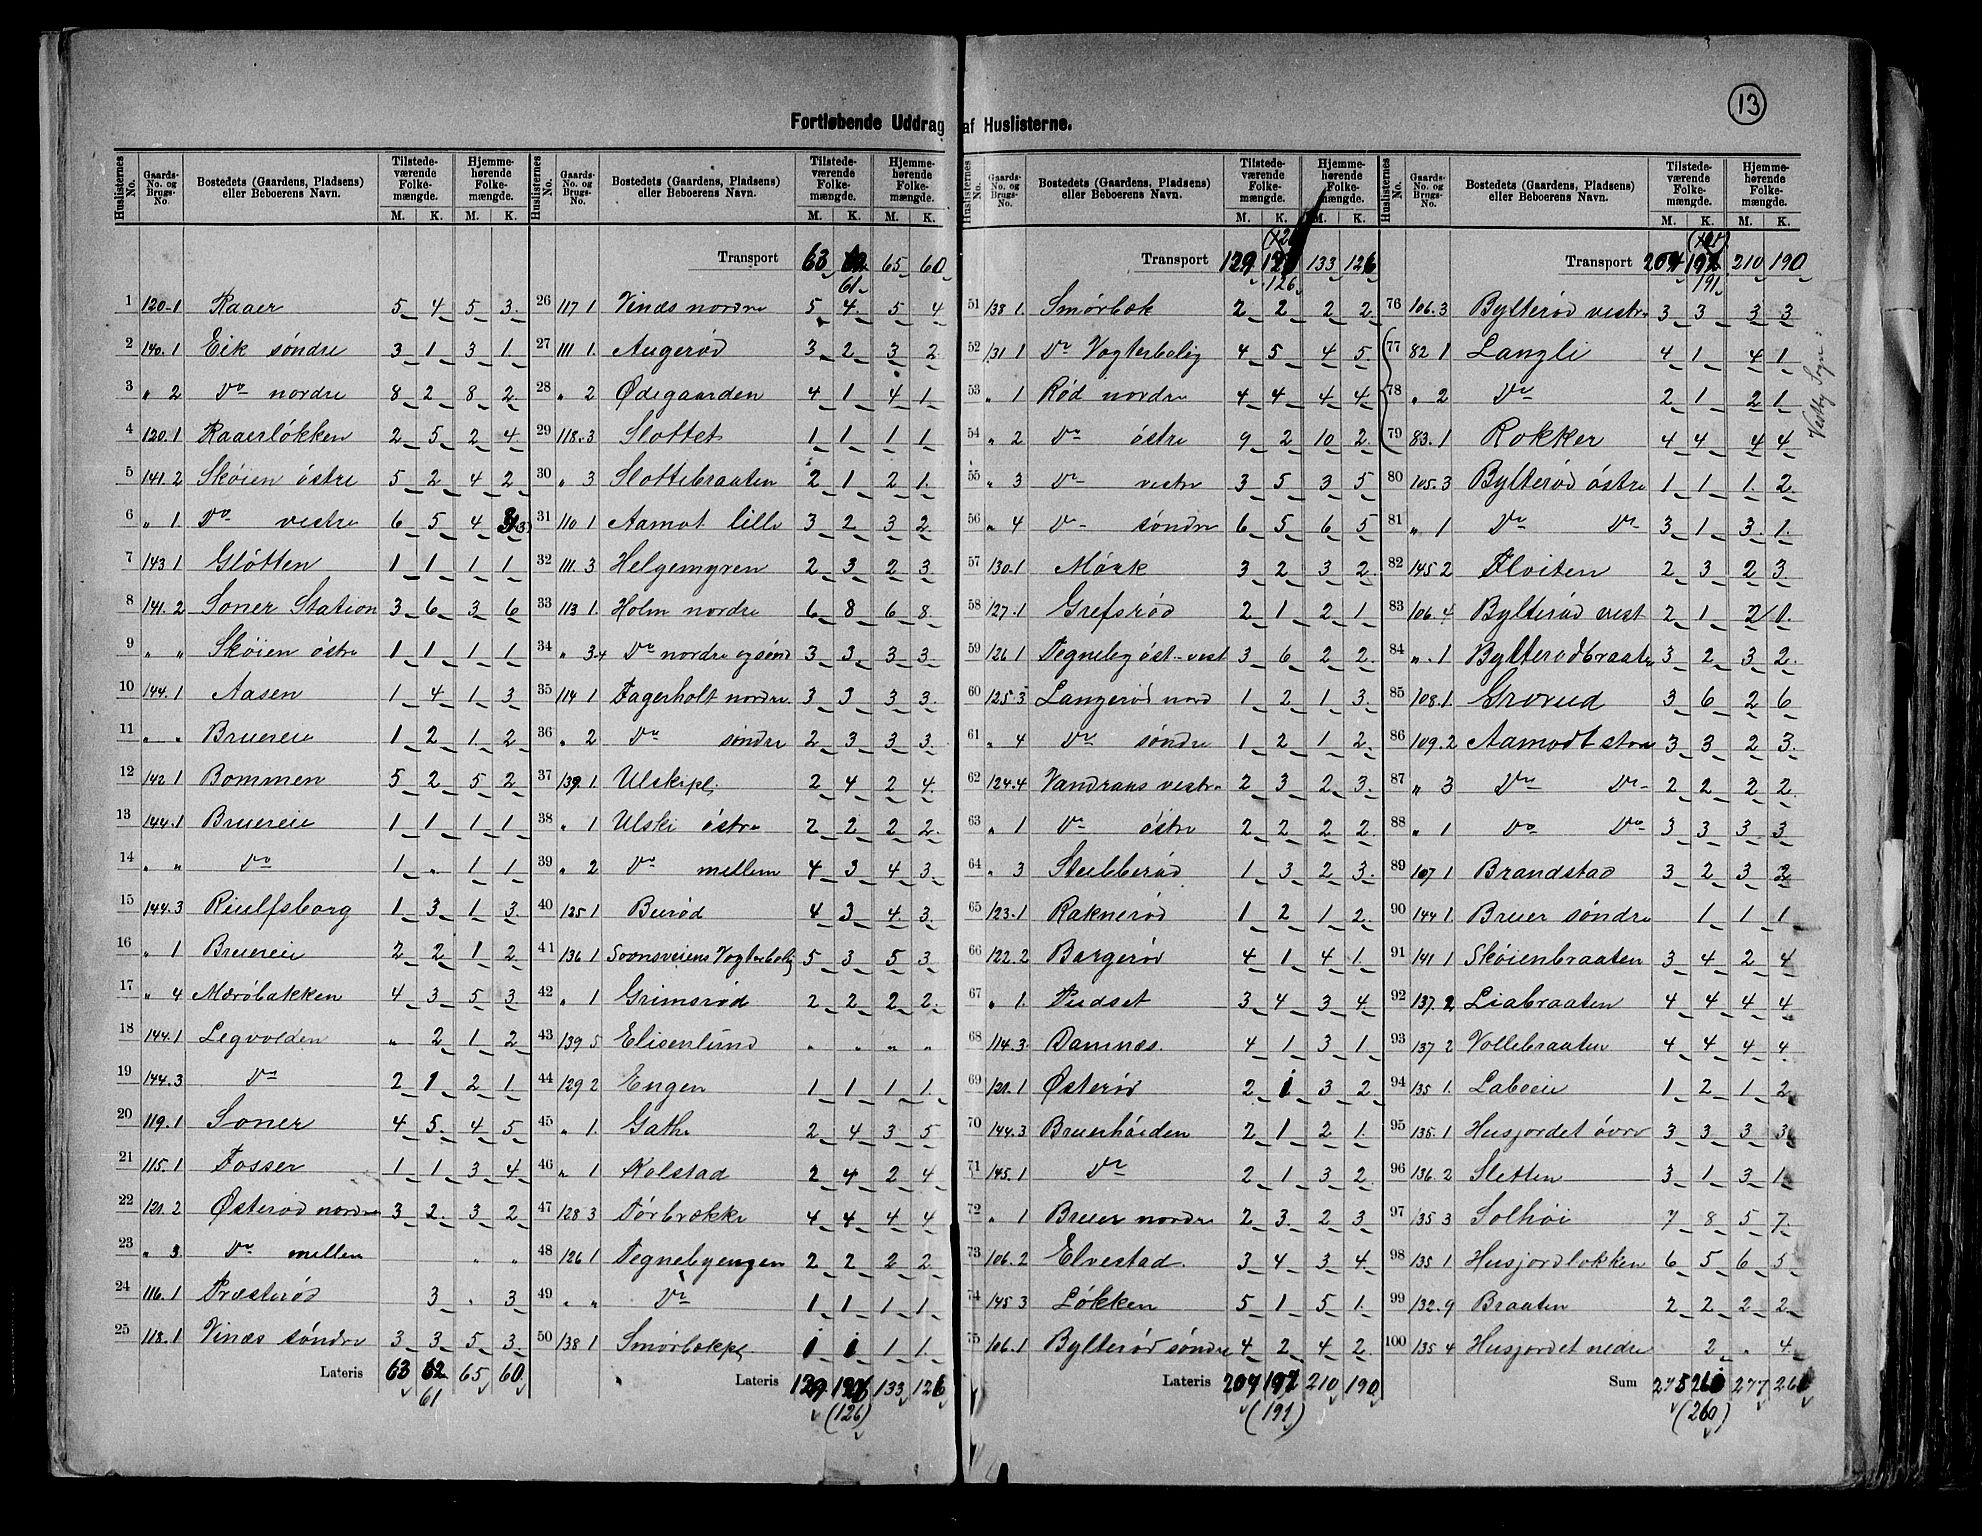 13
Fortløbende Uddrag af Huslisterne.
Huslisternes No. Gaards-No. og Brugs-No. Bostedets (Gaardens, Pladsens) eller Beboerens Navn. Tilstedeværende Folkemængde. M. K. Hjemmehørende Folkemængde. M. K.
1 120.1 Raaer 5 4 5 3
2 140.1 Eik søndre 3 1 3 1
3 " 2 Do nordre 8 2 8 2
4 120.1 Raaerløkken 2 5 2 4
5 141.2 Skøien østre 5 2 4 2
6 " 1 Do vestre 6 5 4 (3)
7 143 1 Gløtten 1 1 1 1
8 141.2 Soner Station 3 6 3 6
9 " " Skøien østre 1 1 1 1
10 144.1 Aasen 1 4 1 3
11 " " Bruereie 1 2 1 2
12 142.1 Bommen 5 2 5 2
13 144.1 Bruereie 1 1 1 1
14 " " Do 1 " 1 1
15 144.3 Riulfsborg 1 3 1 3
16 " 1 Bruereie 2 2 1 2
17 " 4 Mærøbakken 4 3 5 3
18 144.1 Legvolden " 2 1 2
19 144.3 Do 2 1 2 1
20 119.1 Soner 4 5 4 5
21 115.1 Fosser 1 1 3 4
22 121.2 Østerød nordre 3 2 3 2
23 " 3 Do mellem " "
24 116.1 Præsterød 3 " 3
25 118.1 Vinæs søndre 3 3 5 3
Lateris 63 62 65 60
61
Huslisternes No. Gaards-No. og Brugs-No. Bostedets (Gaardens, Pladsens) eller Beboerens Navn. Tilstedeværende Folkemængde. M. K. Hjemmehørende Folkemængde. M. K.
Transport 63 62 65 60
61
26 117 1 Vinæs nordre 5 4 5 4
27 111 1. Augerød 3 2 3 2
28 " 2 Ødegaarden 4 1 4 1
29 118.3 Slottet 1 1 1 1
30 " 3 Slottebraaten 2 1 2 1
31 110 1 Aamot lille 3 2 3 2
32 111.3 Helgemyren 2 3 2 3
33 113 1. Holm nordre 6 8 6 8
34 " 3.4 Do nordre og sønd 3 3 3 3
35 114 1 Fagerholt nordre 3 3 3 3
36 " 2 Do søndre 2 3 3 3
37 139.1 Ulskipl. 2 4 2 4
38 " 1 Ulski østre 2 2 2 2
39 " 2 Do mellem 4 3 4 3
40 125 1 Burød 4 3 4 3
41 136 1 Soonsveiens Vogterbolig 5 3 5 3
42 " 1 Grimsrød 2 2 2 2
43 139 5 Elisenlund " " " "
44 129 2 Engen 1 1 1 1
45 " 1. Gathe 2 4 3 5
46 " 1 Kolstad 2 4 2 4
47 128 3 Tørbrække 4 4 4 4
48 126 1 Tegnebyengen 2 2 2 2
49 " " Do 1 1 1 1
50 138 1 Smørbækpl 1 1 1 1
Lateris 129 127 133 126
(126)
Huslisternes No. Gaards-No. og Brugs-No. Bostedets (Gaardens, Pladsens) eller Beboerens Navn. Tilstedeværende Folkemængde. M. K. Hjemmehørende Folkemængde. M. K.
Transport 129 127 133 126
126
51 138 1. Smørbæk 2 2 2 2
52 131 1 Do Vogterbolig 4 5 4 5
53 " 1 Rød nordre 4 4 4 4
54 " 2 Do østre 9 2 10 2
55 " 3 Do vestre 3 5 3 5
56 " 4 Do søndre 6 5 6 5
57 130.1 Mørk 3 2 3 2
58 127.1 Grefsrød 2 1 2 1
59 126 1 Tegneby øst-vest 3 6 2 2
60 125 3 Langerød nord 1 2 1 3
61 " 4 Do søndre 1 2 1 2
62 124.4 Vandrans vestre 2 3 2 3
63 " 1 Do østre 2 2 2 2
64 " 3 Stubberød 1 3 2 3
65 123.1 Raknerød 1 2 1 2
66 122.2 Bergerød 4 1 4 1
67 " 1. Pudset 3 4 3 4
68 114.3 Damnæs 4 1 3 1
69 121.1 Østerød 2 1 3 2
70 144.3 Bruerhøiden 2 1 2 1
71 145.1 Do 2 1 3 2
72 " 1 Bruer nordre 2 3 2 3
73 106.2 Elvestad 3 4 3 4
74 145 3 Løkken 5 1 5 1
75 106.1 Bylterød søndre 4 2 4 2
Lateris 204 192 210 190
(191)
Huslisternes No. Gaards-No. og Brugs-No. Bostedets (Gaardens, Pladsens) eller Beboerens Navn. Tilstedeværende Folkemængde. M. K. Hjemmehørende Folkemængde. M. K.
Transport 204 192 210 190
191
76 106.3 Bylterød vestre 3 3 3 3
77 82 1 Langli 4 1 4 1
78 " 2 Do 2 1 2 1
79 83.1 Rokker 4 4 4 4
Vestby Sogn
80 105.3 Bylterød østre 1 1 1 2
81 " 1 Do Do 3 1 3 1
82 145 2 Floiten 2 3 2 3
83 106.4 Bylterød vest 2 1 2 1
84 " 1 Bylterødbraaten 3 2 3 2
85 108.1 Grorud 3 6 2 6
86 109.2 Aamodt store 3 3 2 3
87 " 3 Do Do 2 2 2 2
88 " 1 Do Do 3 3 3 3
89 107 1 Brandstad 3 2 3 2
90 144 1 Bruer søndre 1 1 1
91 141 1 Skøienbraaten 3 4 2 4
92 137.2 Liabraaten 4 4 4 4
93 137 2 Vollebraaten 4 4 4 4
94 135 1. Laboeie 1 2 1 2
95 135.1 Husjordet øvre 3 3 3 3
96 136.2 Sletten 3 1 3 1
97 135 3 Solhøi 7 8 5 7
98 135 1 Husjordløkken 6 5 6 5
99 132.9 Braaten 2 2 2 2
100 135 4 Husjordet nedre 2 " 4
Sum 275 260 277 261
(260)